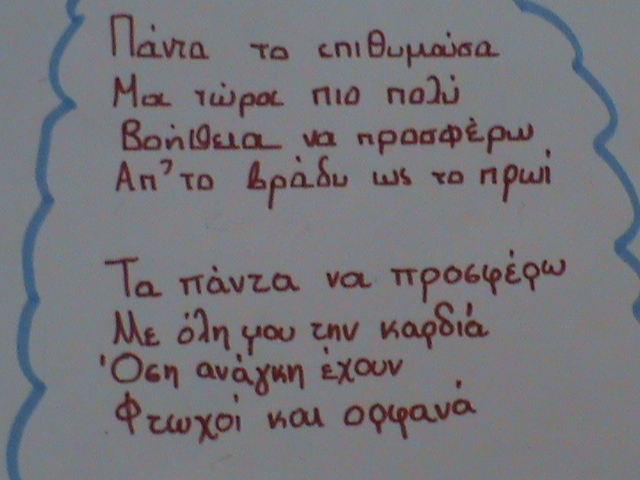 Πάντα το επιθυμούσα
Μα τώρα πιο πολύ
Βοήθεια να προσφέρω
Απ' το βράδυ ως το πρωί
Τα πάντα να προσφέρω
Με όλη μου την καρδιά
Όση ανάγκη έχουν
Φτωχοί και ορφανά